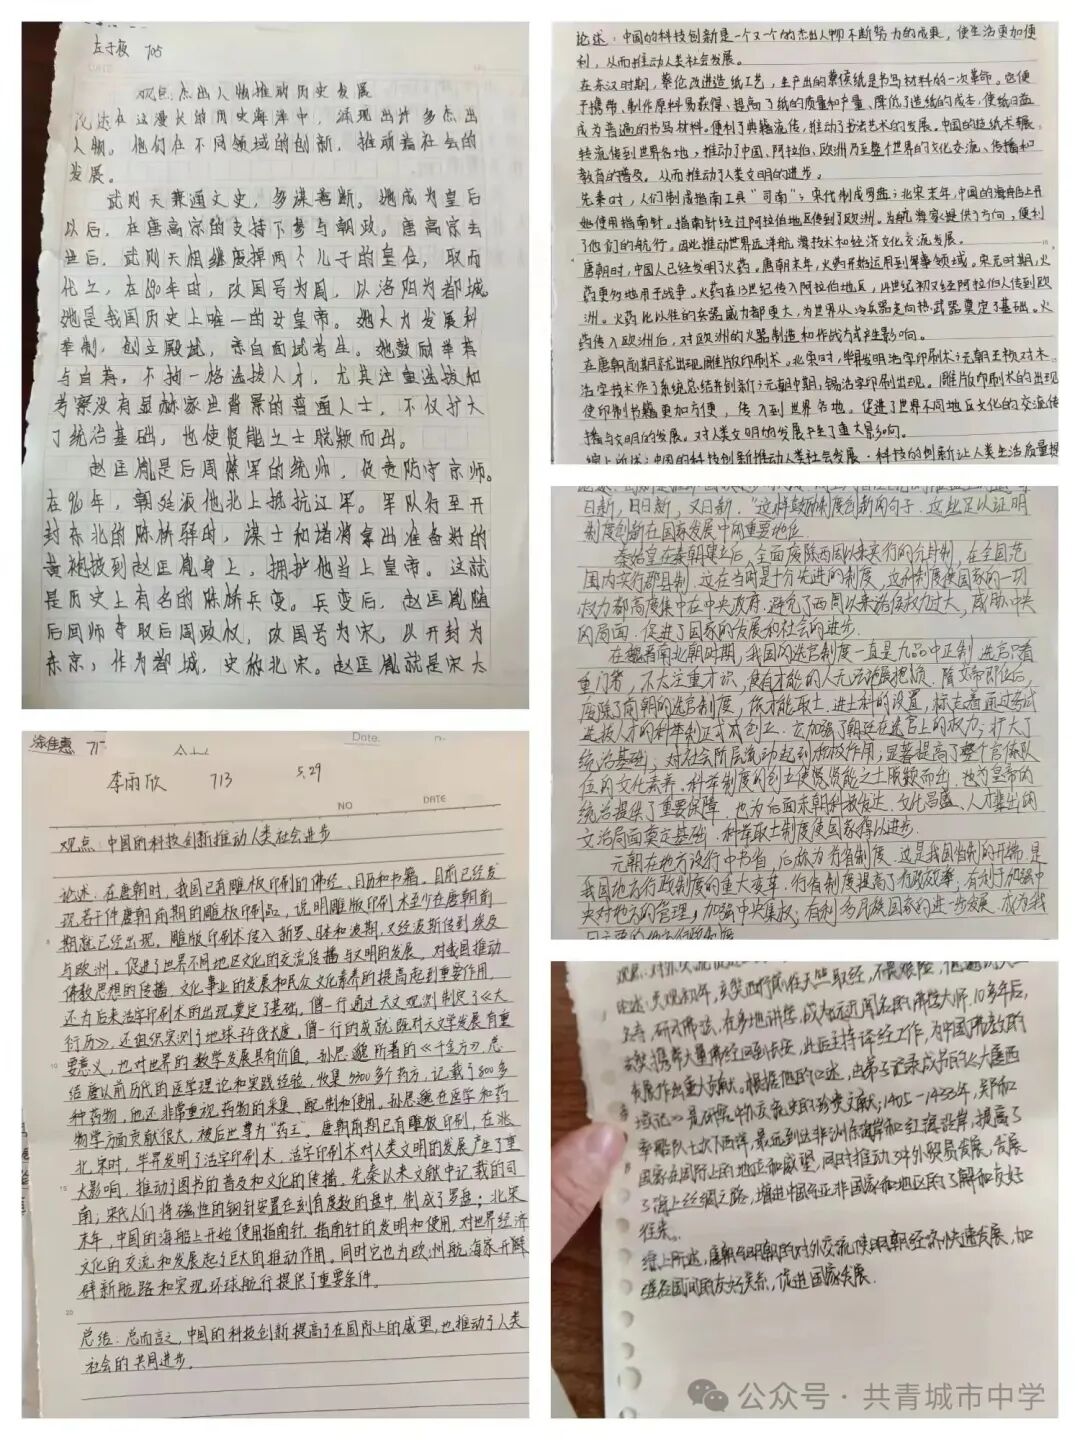 左子俊 705
观点:杰出人物推动历史发展
论述在这漫长的历史海洋中,涌现出许多杰出
人物。他们在不同领域的创新,推动着社会的
发展。
武则天兼通文史,多谋善断。她成为皇后
以后,在唐高宗的支持下参与朝政。唐高宗去
世后,武则天相继废掉两个儿子的皇位,取而
代之,在690年时,改国号为周,以洛阳为都城。
她是我国历史上唯一的女皇帝。她大力发展科
举制,创立殿试,亲自面试考生。她鼓励举荐
与自荐,不拘一格选拔人才,尤其注重选拔和
考察没有显赫家世背景的普通人士,不仅扩大
了统治基础,也使贤能之士脱颖而出。
赵匡胤是后周禁军的统帅,负责防守京师。
在960年,朝廷派他北上抵抗辽军。军队行至开
封东北的陈桥驿时,谋士和诸将拿出准备好的
黄袍披到赵匡胤身上,拥护他当上皇帝。这就
是历史上有名的陈桥兵变。兵变后,赵匡胤随
后回师夺取后周政权,改国号为宋,以开封为
东京,作为都城,史称北宋。赵匡胤就是宋太
论述:中国的科技创新是一个又一个的杰出人物不断努力的成果,使生活更加便
利,从而推动人类社会发展。
在东汉时期,蔡伦改进造纸工艺,生产出的蔡侯纸是书写材料的一次革命。它便
于携带、制作原料易获得、提高了纸的质量和产量、降低了造纸的成本,使纸日益
成为普遍的书写材料。便利了典籍流传,推动了书法艺术的发展。中国的造纸术辗
转流传到世界各地,推动了中国、阿拉伯、欧洲乃至整个世界的文化交流、传播和
教育的普及。从而推动了人类文明的进步。
先秦时,人们制成指南工具“司南”;宋代制成罗盘;北宋末年,中国的海船上开
始使用指南针。指南针经过阿拉伯地区传到了欧洲。为航海家提供了方向,便利
了他们的航行。因此推动世界远洋航海技术和经济文化交流发展。
唐朝时,中国人已经发明了火药。唐朝末年,火药开始运用到军事领域。宋元时期,火
药更多地用于战争。火药在13世纪传入阿拉伯地区,14世纪初又经阿拉伯人传到欧
洲。火药比以往的兵器威力都更大,为世界从冷兵器走向热武器奠定了基础。火
药传入欧洲后,对欧洲的火器制造和作战方式产生影响。
在唐朝前期就出现雕版印刷术。北宋时,毕昇发明活字印刷术;元朝王祯对木
活字技术作了系统总结并创新;元朝中期,锡活字印刷出现。雕版印刷术的出现
使印刷书籍更加方便,传入到世界各地。促进了世界不同地区文化的交流传
播与文明的发展。对人类文明的发展产生了重大影响。
综上所述:中国的科技创新推动人类社会发展,科技的创新让人类生活质量提
日新,日日新,又日新。”这样鼓励制度创新的句子。这些足以证明
制度创新在国家发展中的重要地位。
秦始皇在秦朝建立后,全面废除西周以来实行的分封制,在全国范
围内实行郡县制。这在当时是十分先进的制度,这种制度使国家的一切
权力都高度集中在中央政府,避免了西周以来诸侯权力过大,威胁中央
的局面,促进了国家的发展和社会的进步。
在魏晋南北朝时期,我国的选官制度一直是九品中正制,选官只看
重门第,不太注重才识,使有才能的人无法施展抱负。隋文帝即位后,
废除了前朝的选官制度,依才能取士。进士科的设置,标志着通过考试
选拔人才的科举制正式创立。它加强了朝廷在选官上的权力,扩大了
统治基础,对社会阶层流动起到积极作用,显著提高了整个官僚队
伍的文化素养。科举制度的创立使贤能之士脱颖而出,也为皇帝的
统治提供了重要保障,也为后面宋朝科技发达、文化昌盛、人才辈出的
文治局面奠定基础。科举取士制度使国家得以进步。
元朝在地方设行中书省,后称为行省制度。这是我国省制的开端,是
我国地方行政制度的重大变革。行省制度提高了行政效率,有利于加强中
央对地方的管理,加强中央集权;有利多民族国家的进一步发展,成为我
涂佳惠 71
李雨欣 713 5.29
Date.
NO DATE
观点:中国的科技创新推动人类社会进步
论述:在唐朝时,我国已有雕板印刷的佛经、日历和书籍。目前已经发
现若干件唐朝前期的雕版印刷品,说明雕版印刷术至少在唐朝前
期就已经出现。雕版印刷术传入新罗、日本和波斯,又经波斯传到埃及
与欧洲。促进了世界不同地区文化的交流传播与文明的发展。对我国推动
佛教思想的传播,文化事业的发展和民众文化素养的提高起到重要作用,
还为后来活字印刷术的出现奠定了基础。僧一行通过天文观测制定了《大
衍历》,还组织实测了地球子午线长度。僧一行的成就既对天文学发展有重
要意义,也对世界的数学发展具有价值。孙思邈所著的《千金方》,总
结唐以前历代的医学理论和实践经验,收集5300多个药方,记载了800多
种药物,他还非常重视药物的采集、配制和使用。孙思邈在医学和药
物学方面贡献很大,被后世尊为“药王”。唐朝前期已有雕版印刷,在北
北宋时,毕昇发明了活字印刷术,活字印刷术对人类文明的发展产生了重
大影响,推动了图书的普及和文化的传播。先秦以来文献中记载的司
南;宋代人们将磁性的钢针安置在刻有度数的盘中,制成了罗盘;北宋
末年,中国的海船上开始使用指南针。指南针的发明和使用,对世界经济
文化的交流和发展起了巨大的推动作用。同时它也为欧洲航海家开辟
辟新航路和实现环球航行提供了重要条件。
总结:总而言之,中国的科技创新提高了在国际上的威望,也推动了人类
社会的共同进步。
论述:贞观初年,玄奘西行前往天竺取经,不畏艰险,
名寺,研习佛法,在多地讲学,成为远近闻名的佛学大师,10多年后,
玄奘携带大量佛经回到长安,此后主持译经工作,为中国佛教的
发展作出重大贡献。根据他的口述,由弟子记录成书的《大唐西
域记》是研究中外交流史的珍贵文献;1405-1433年,郑和
率船队七次下西洋,最远到达非洲东海岸和红海沿岸,提高了
国家在国际上的地位和威望,同时推动了对外贸易发展,发展
了海上丝绸之路,增进中国和亚非国家和地区的了解和友好
往来。
综上所述,唐朝与明朝的对外交流,使明朝经济快速发展,加
强各国间的友好关系,促进国家发展.
公众号·共青城市中学